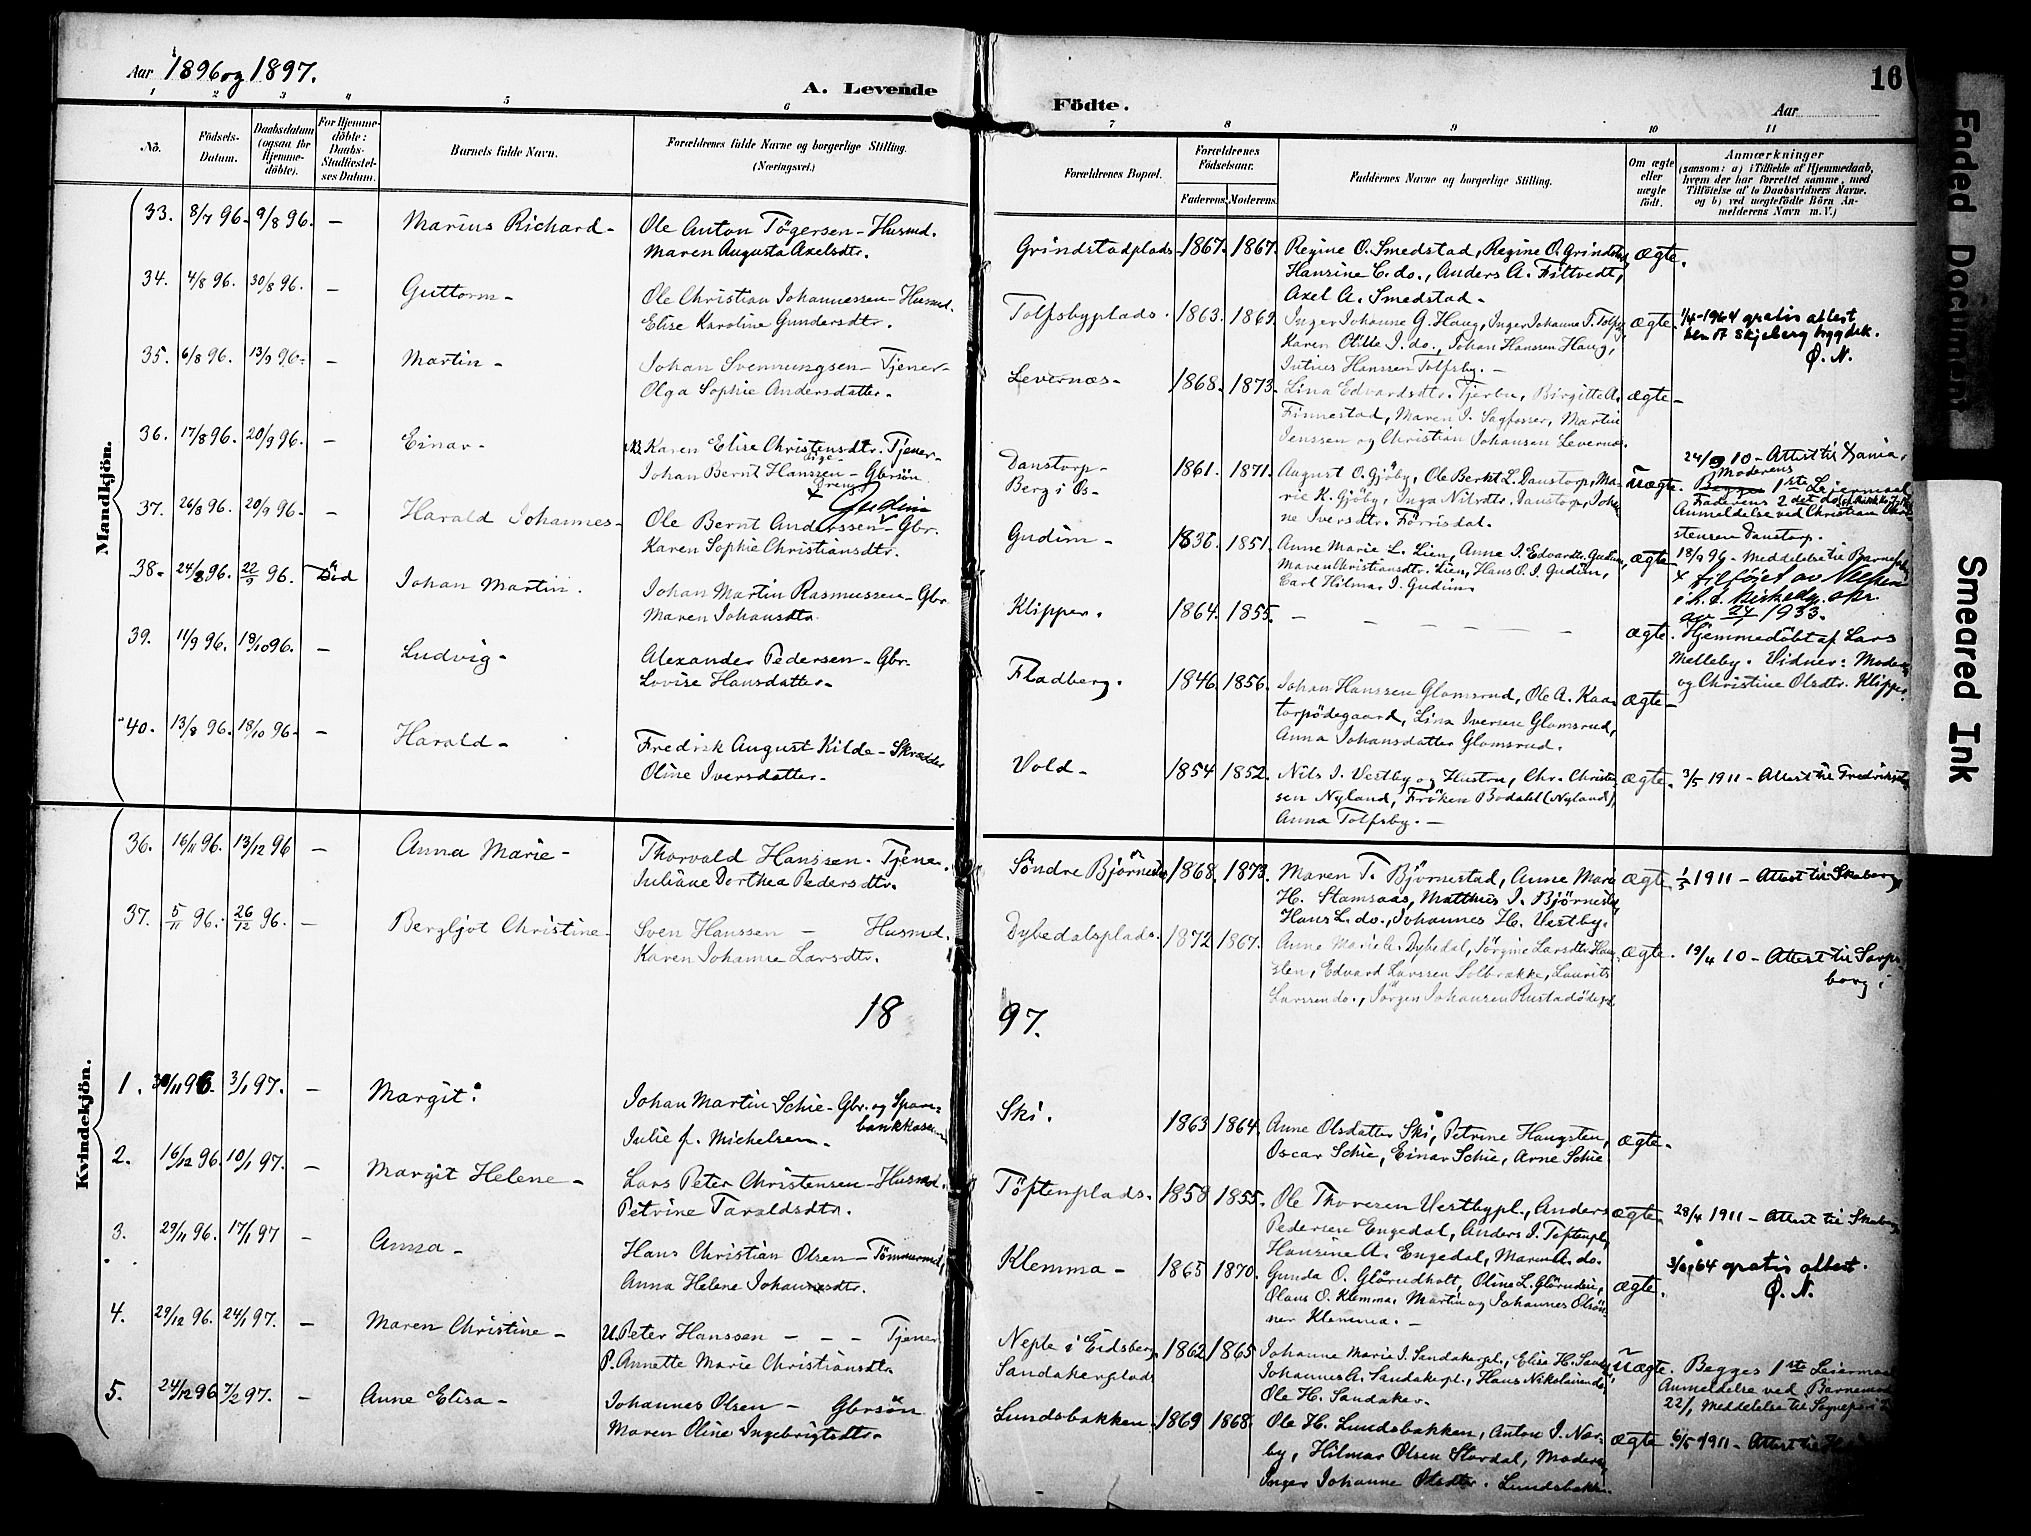 Aar 1896 og 1897.
A. Levende
Födte.
Aar
16
1 2 3 4 5 6 7 8 9 10 11
Nö.
Födsels-Datum.
Daabsdatum (ogsaa for Hjemmedöbte).
For Hjemmedöbte: Daabs-Stadfæstelses Datum.
Barnets fulde Navn.
Forældrenes fulde Navne og borgerlige Stilling.
(Næringsvei.)
Forældrenes Bopæl.
Forældrenes Födselsaar.
Faderens. Moderens.
Faddernes Navne og borgerlige Stilling.
Om ægte eller uægte födt.
Anmærkninger
(saasom: a) i Tilfælde af Hjemmedaab, hvem der har forrettet samme, med Tilföielse af to Daabsvidners Navne. og b) ved uægtefödte Börn Anmelderens Navn m. V.)
Mandkjön.
33. 8/7 96. 9/8 96. – Marius Richard – Ole Anton Tögersen – Husmd.
Maren Augusta Axelsdtr.
Grindstadplads 1867. 1867. Regine O. Smedstad, Regine O. Grindstad,
Hansine C. do., Anders A. Filtvedt,
Axel A. Smedstad –
ægte.
34. 4/8 96. 30/8 96. – Guttorm – Ole Christian Johannessen – Husmd.
Elise Karoline Gundersdtr.
Tolfsbyplads. 1863. 1869. Inger Johanne G. Haug, Inger Johanne T. Tolfsby
Karen Otilie I. do., Johan Hanssen Haug,
Julius Hanssen Tolfsby. –
ægte. 1/4-1964 gratis attest
Skjeberg bygdek.
Ø. N.
35. 6/8 96. 13/9 96. – Martin – Johan Svennungsen – Tjener
Olga Sophie Andersdatter.
Levernæs – 1868. 1873. Lina Edvardsdtr. Tjerbu, Birgitte A.
Finnestad, Maren I. Sagfosser, Martin
Jenssen og Christian Johansen Levernæs.
ægte –
36. 17/8 96. 20/9 96. – Einar – Karen Elise Christensdtr. Tjener
Johan Bernt Hanssen – Gbrsön
Danstorp –
Berg i Ös –
1861. 1871. August O. Gjöby, Ole Berht L. Danstorp, Ma-
rie K. Gjöby, Inga Nilsdtr. Danstorp, Johan-
ne Iversdtr. Förrisdal.
Uægte. 24/9 10 – Attest til
Moderens
Begges 1ste Leiermaal
Faderens 2det do.
Anmeldelse ved Christian Chri-
stensen Danstorp.
37. 26/8 96. 20/9 96. – Harald Johannes – Ole Bernt Anderssen Gudim – Gbr.
Karen Sophie Christiansdtr.
Gudim – 1836. 1851. Anne Marie L. Lien, Anne I. Edvardtr. Gudim,
Maren Christiansdtr. Lien, Hans O. I. Gudim,
Carl Hilmar I. Gudim.
ægte – 18/9 96 – Meddelelse til
x tilföiet av
24/1 1933.
38. 24/8 96. 22/9 96. Död Johan Martin. Johan Martin Rasmussen – Gbr.
Maren Johansdtr.
Klipper. 1864. 1855. – – – – –
ægte. Hjemmedöbt af Lars
Melleby. Vidner: Moderen
og Christine Olsdtr. Klipper.
39. 11/9 96. 18/10 96. – Ludvig – Alexander Pedersen – Gbr.
Lovise Hansdatter –
Fladberg. 1846. 1856. Johan Hanssen Glomsrud, Ole A. Kaa-
torpödegaard, Lina Iversen Glomsrud,
Anna Johansdatter Glomsrud.
ægte –
40. 13/8 96. 18/10 96 – – Harald – Fredrik August Kilde – Skrædder
Oline Iversdatter –
Vold – 1854 1852. Nils I. Vestby og Hustru, Chr. Christen-
sen Nyland, Fröken Bodahl (Nyland),
Anna Tolfsby. –
ægte. 3/5 1911 – Attest til Fredrikst
Kvindekjön.
36. 16/11 96. 13/12 96 – Anna Marie – Thorvald Hanssen – Tjener.
Juliane Dorthea Pedersdtr.
Söndre Björnestad 1868. 1873. Maren T. Björnestad, Anne Marie
H. Stamsaas, Matthis I. Björnestad,
Hans L. do., Johannes H. Vestby.
ægte. 1/5 1911 – Attest til Skeberg
37. 5/11 96. 26/12 96. – Bergljot Christine – Sven Hanssen – Husmd.
Karen Johanne Larsdtr.
Dybedalsplads. 1872 1867. Anne Marie A. Dybedal, Jörgine Larsdtr. Haug-
sten, Edvard Larssen Solbrække, Laurits
Larssen do., Jörgen Johansen Rustadödegd
ægte. 19/4 10 – Attest til Sarps-
borg.
18 97.
1. 30/11 96. 3/1 97. – Margit. Johan Martin Schie – Gbr. og Spare-
bankkasserer
Julie f. Michelsen –
Ski. 1863 1864. Anne Olsdatter Ski, Petrine Haugsten,
Oscar Schie, Einar Schie, Arne Schie
ægte –
2. 16/12 96. 10/1 97. – Margit Helene – Lars Peter Christensen – Husmd.
Petrine Taraldsdtr.
Töftenplads. 1858 1855. Ole Thoresen Vestbypl., Anders
Pedersen Engedal, Anders I. Töftenpl.,
Hansine A. Engedal, Maren A. do.
ægte. 28/4 1911 – Attest til Skeberg
3. 29/11 96. 17/1 97 – Anna – Hans Christian Olsen – Tömmermd,
Anna Helene Johannesdtr.
Klemma – 1865 1870. Gunda O. Glörudholt, Oline L. Glöruden,
Olaus O. Klemma, Martin og Johannes Olsön-
ner Klemma. –
ægte. 3/6 64 gratis attest.
Ø. N.
4. 29/12 96. 24/1 97. – Maren Christine – U. Peter Hanssen – – – Tjener
P. Annette Marie Christiansdtr.
Neple i Eidsberg.
Sandakerplads
1862 1865. Johanne Marie I. Sandakerpl., Elise H. Sandaker
Johannes A. Sandakerpl., Hans Nikolaisen do.,
Ole H. Sandaker.
Uægte. Begges 1ste Leiermaal
Anmeldelse ved Barnemod
22/1 Meddelelse til Sognepr. i
5. 24/12 96 7/2 97. – Anne Elisa – Johannes Olsen – Gbrsön
Maren Oline Ingebrigtsdtr.
Lundsbakken. 1869 1868. Ole H. Lundsbakken, Anton I. Nor-
by, Hilmar Olsen Stordal, Moderen,
Inger Johanne Olsdtr. Lundsbakken.
ægte. 6/5 1911 – Attest til
Faded Document
Smeared Ink